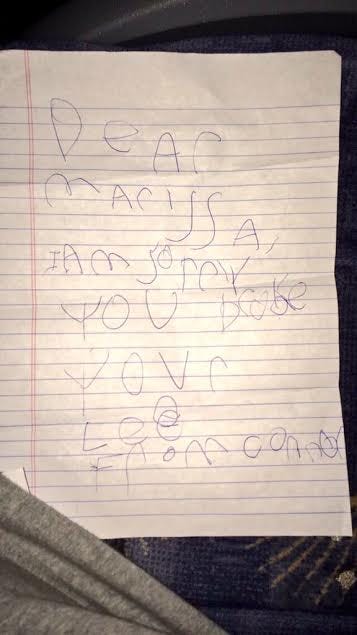 DeAr
mAriss
A,
IAm sorry
YOU broke
YOUr
Lee
From connor